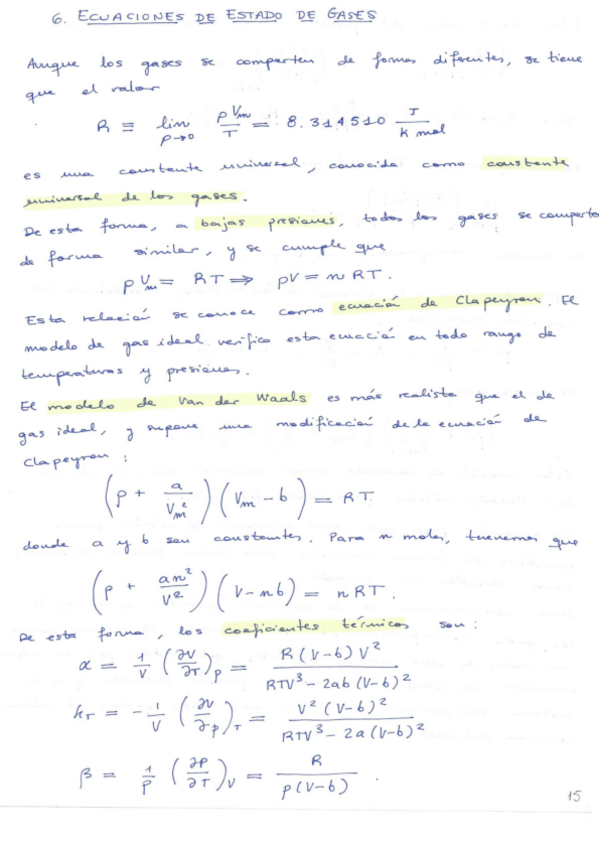 6. ECUACIONES DE ESTADO DE GASES
Aunque los gases se comparten de formas diferentes, se tiene
que el valor
R ≡ lim p→0 pVm/T = 8.314510 J/(K mol)
es una constante universal, conocida como constante
universal de los gases.
De esta forma, a bajas presiones, todos los gases se comporta
de forma similar, y se cumple que
pVm = RT ⇒ pV = nRT.
Esta relación se conoce como ecuación de Clapeyron. El
modelo de gas ideal verifica esta ecuación en todo rango de
temperaturas y presiones.
El modelo de Van der Waals es más realista que el de
gas ideal, y supone una modificación de la ecuación de
Clapeyron:
(p + a/Vm²)(Vm - b) = RT
donde a y b son constantes. Para n moles, tenemos que
(p + an²/V²)(V - nb) = nRT.
De esta forma, los coeficientes térmicos son:
α = 1/V (∂V/∂T)p = R(V-b)V² / (RTV³ - 2ab(V-b)²)
kT = -1/V (∂V/∂p)T = V²(V-b)² / (RTV³ - 2a(V-b)²)
β = 1/p (∂P/∂T)V = R / (p(V-b)).
15